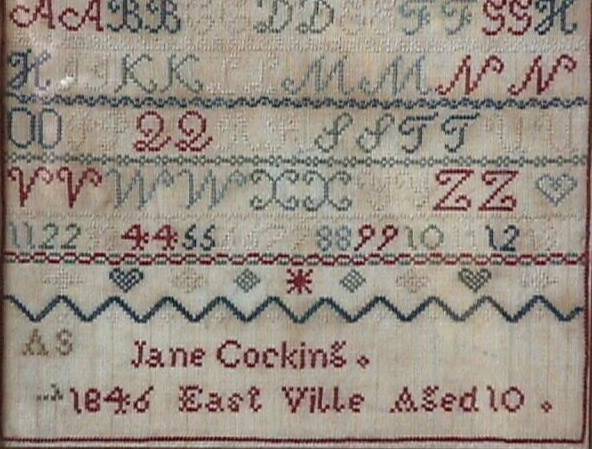 AABB DD FF GGH
H KK MM NN
OO QQ SSTT
VV WW XX ZZ
1122 4455 889910 12
AS Jane Cocking
1846 East Ville Aged 10